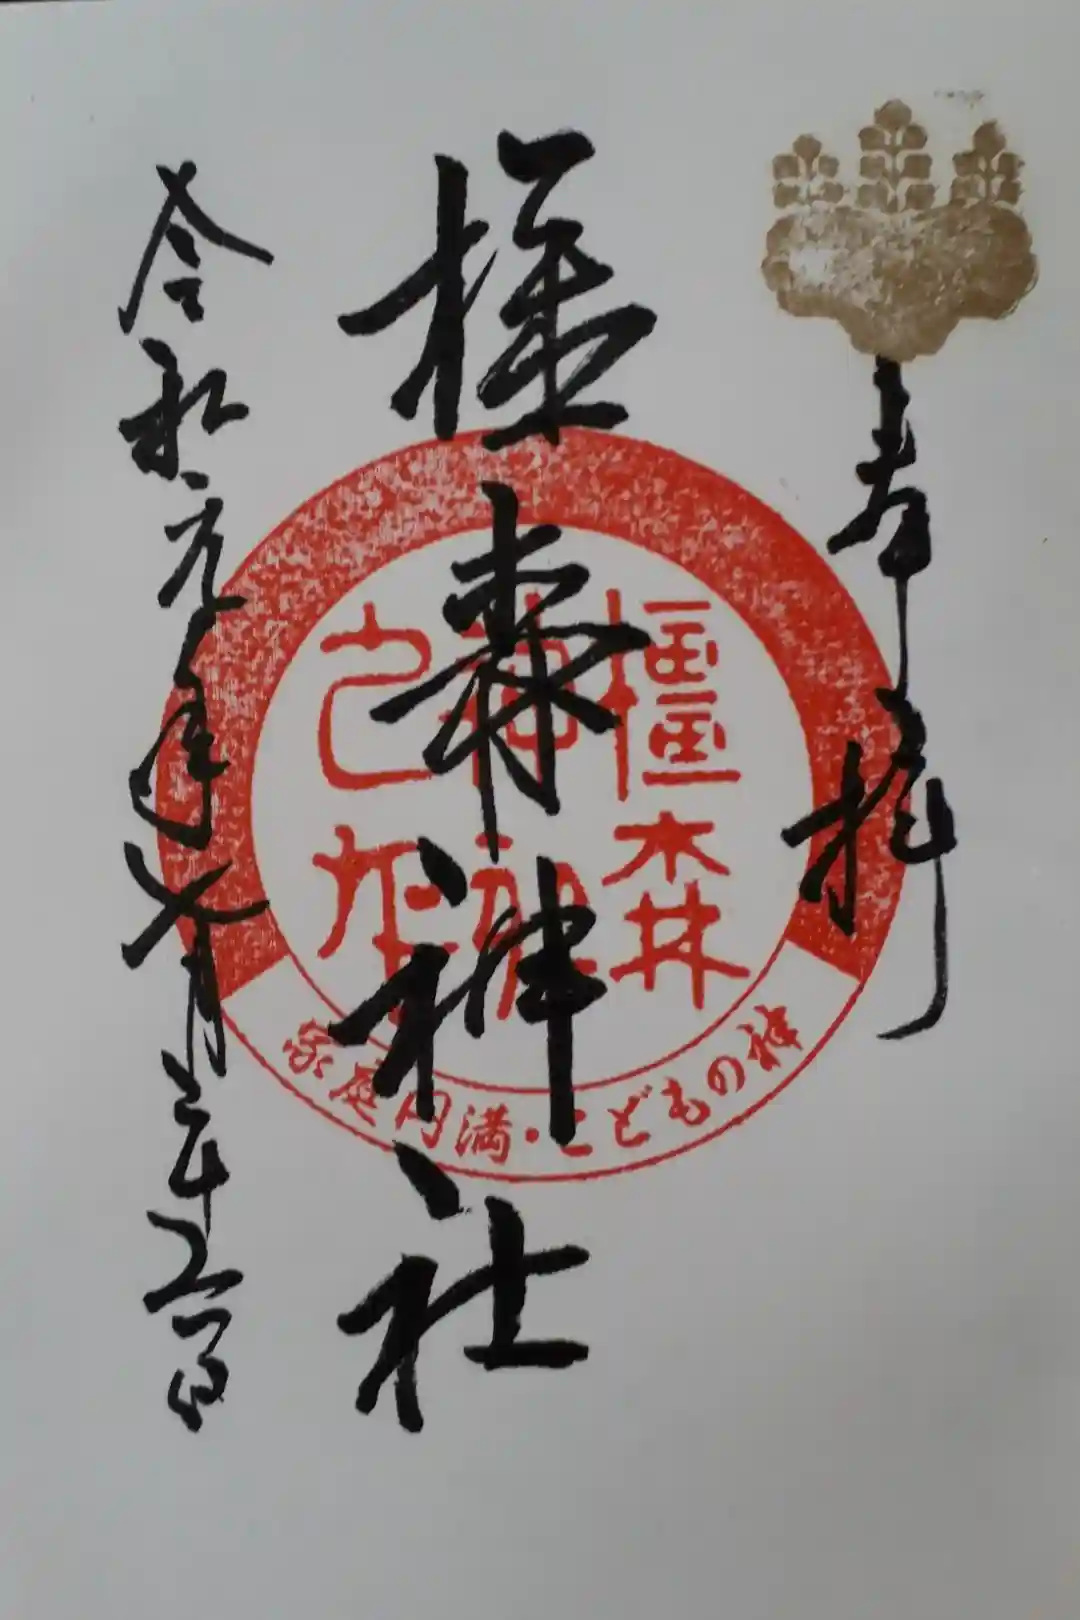 奉拝
橿森神社
令和元年七月二十五日
橿森
神社
之印
家庭円満・こどもの神